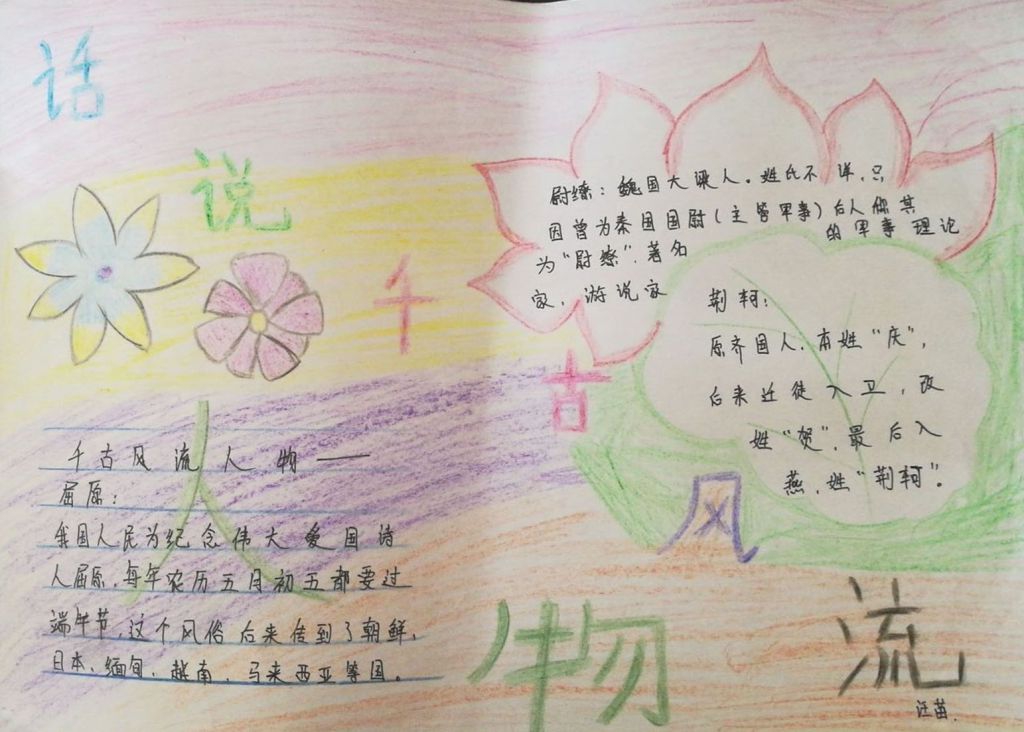 话
说
千
古
风
流
人
物
千古风流人物——
屈原：
我国人民为纪念伟大爱国诗
人屈原，每年农历五月初五都要过
端午节，这个风俗后来传到了朝鲜，
日本、缅甸，越南，马来西亚等国。
尉缭：魏国大梁人。姓氏不详，只
因曾为秦国国尉（主管军事）后人称其
为“尉缭”，著名的军事理论
家，游说家
荆轲：
原齐国人，本姓“庆”，
后来迁徒入卫，改
姓“贺”，最后入
燕，姓“荆轲”。
汪苗．